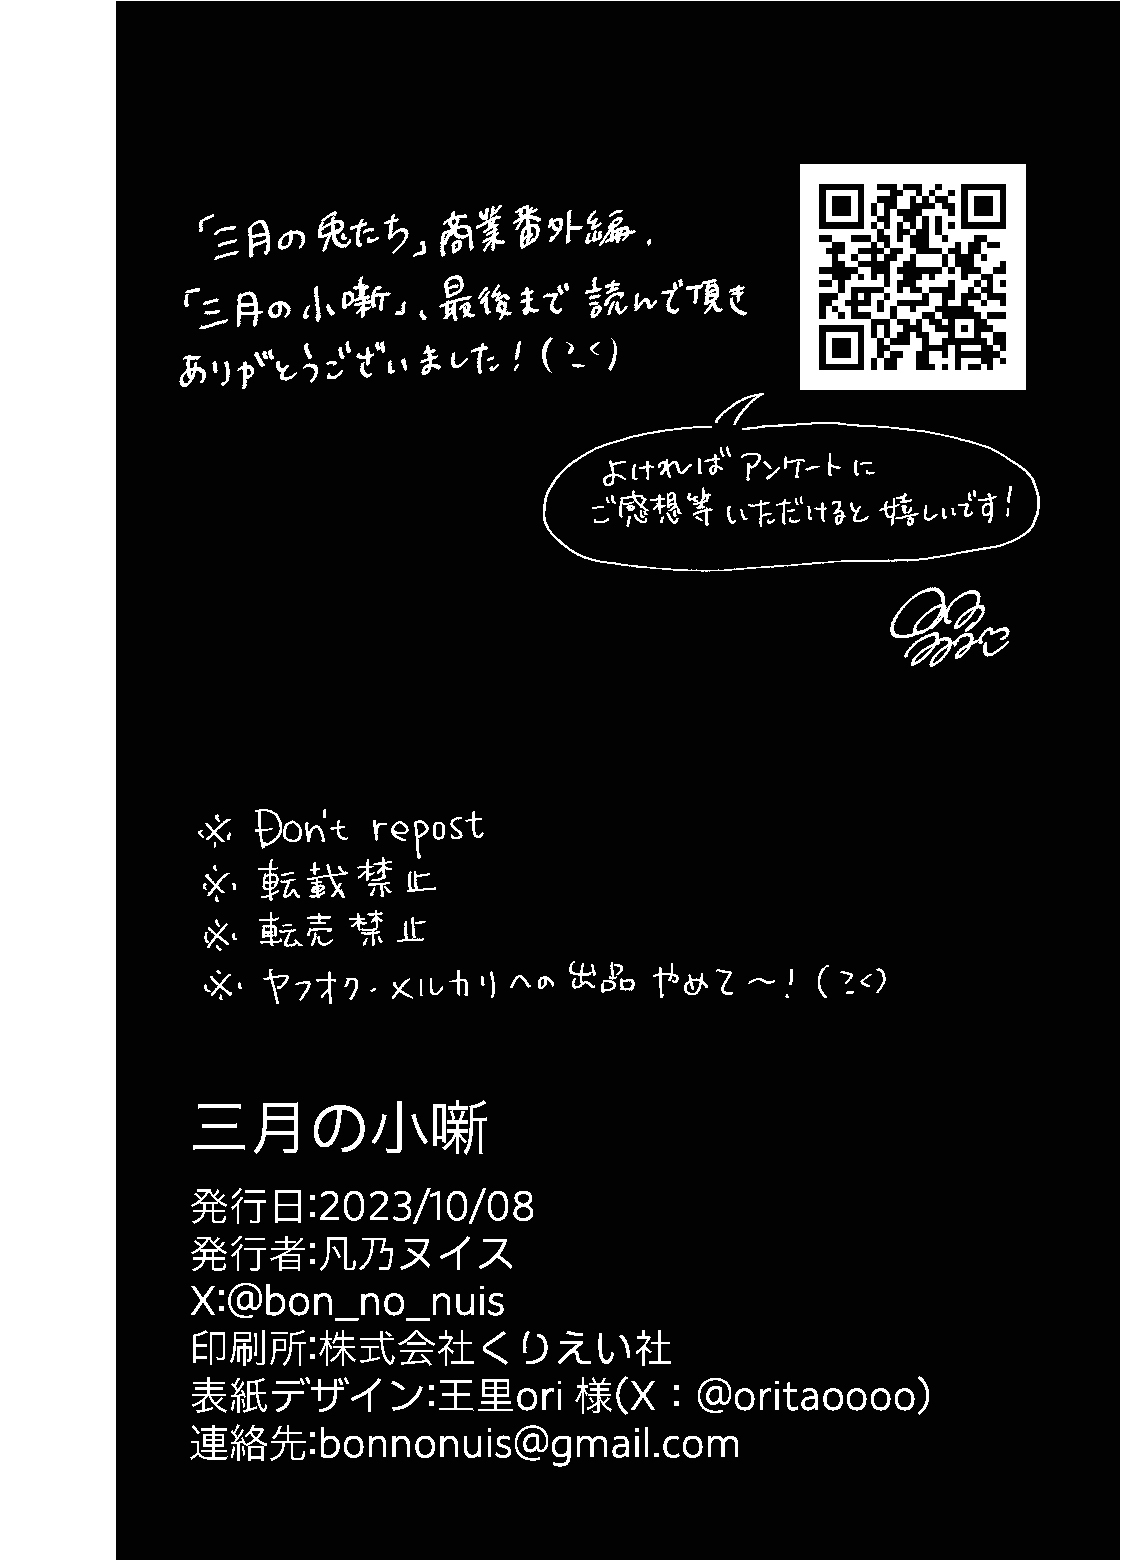 「三月の兎たち」商業番外編、
「三月の小噺」、最後まで読んで頂き
ありがとうございました！
よければアンケートに
ご感想等いただけると嬉しいです！
※ Don't repost
※ 転載禁止
※ 転売禁止
※ ヤフオク・メルカリへの出品やめて〜！
三月の小噺
発行日:2023/10/08
発行者:凡乃ヌイス
X:@bon_no_nuis
印刷所:株式会社くりえい社
表紙デザイン:王里ori 様(X：@oritaoooo)
連絡先:bonnonuis@gmail.com